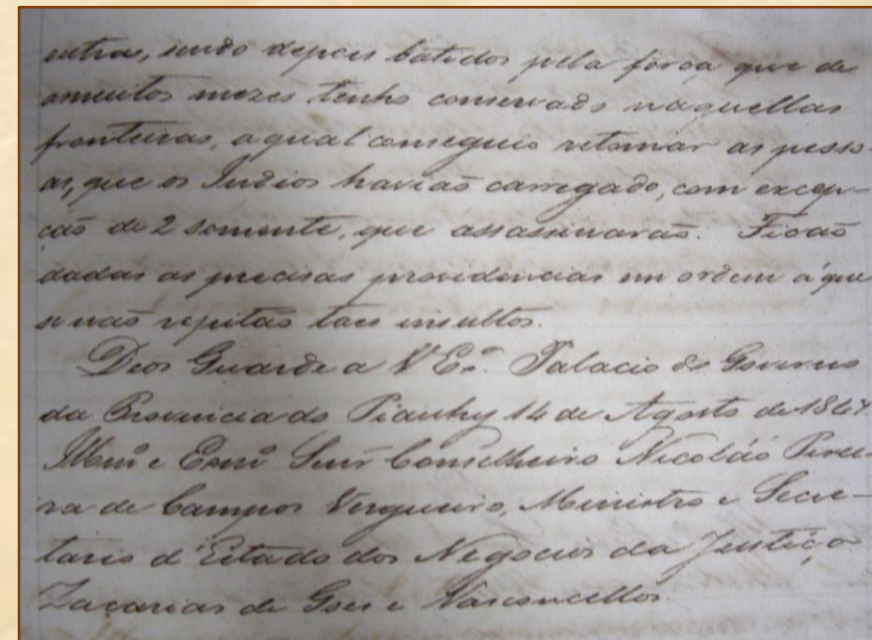 outra, sendo depois batidos pela força que de
a muitos mezes tenho conservado naquellas
fronteiras, a qual conseguio retomar as pesso-
as, que os Indios haviaõ carregado, com excep-
çaõ de 2 somente, que assassinaraõ. Ficaõ
dadas as precisas providencias em ordem á que
se naõ repitaõ taes insultos.
Deos Guarde a V Ex.ª Palacio do Governo
da Provincia do Piauhy 14 de Agosto de 1847.
Illm.º e Exm.º Senr. Conselheiro Nicoláo Perei-
ra de Campos Vergueiro, Ministro e Secre-
tario d'Estado dos Negocios da Justiça
Zacarias de Goes e Vasconcellos.